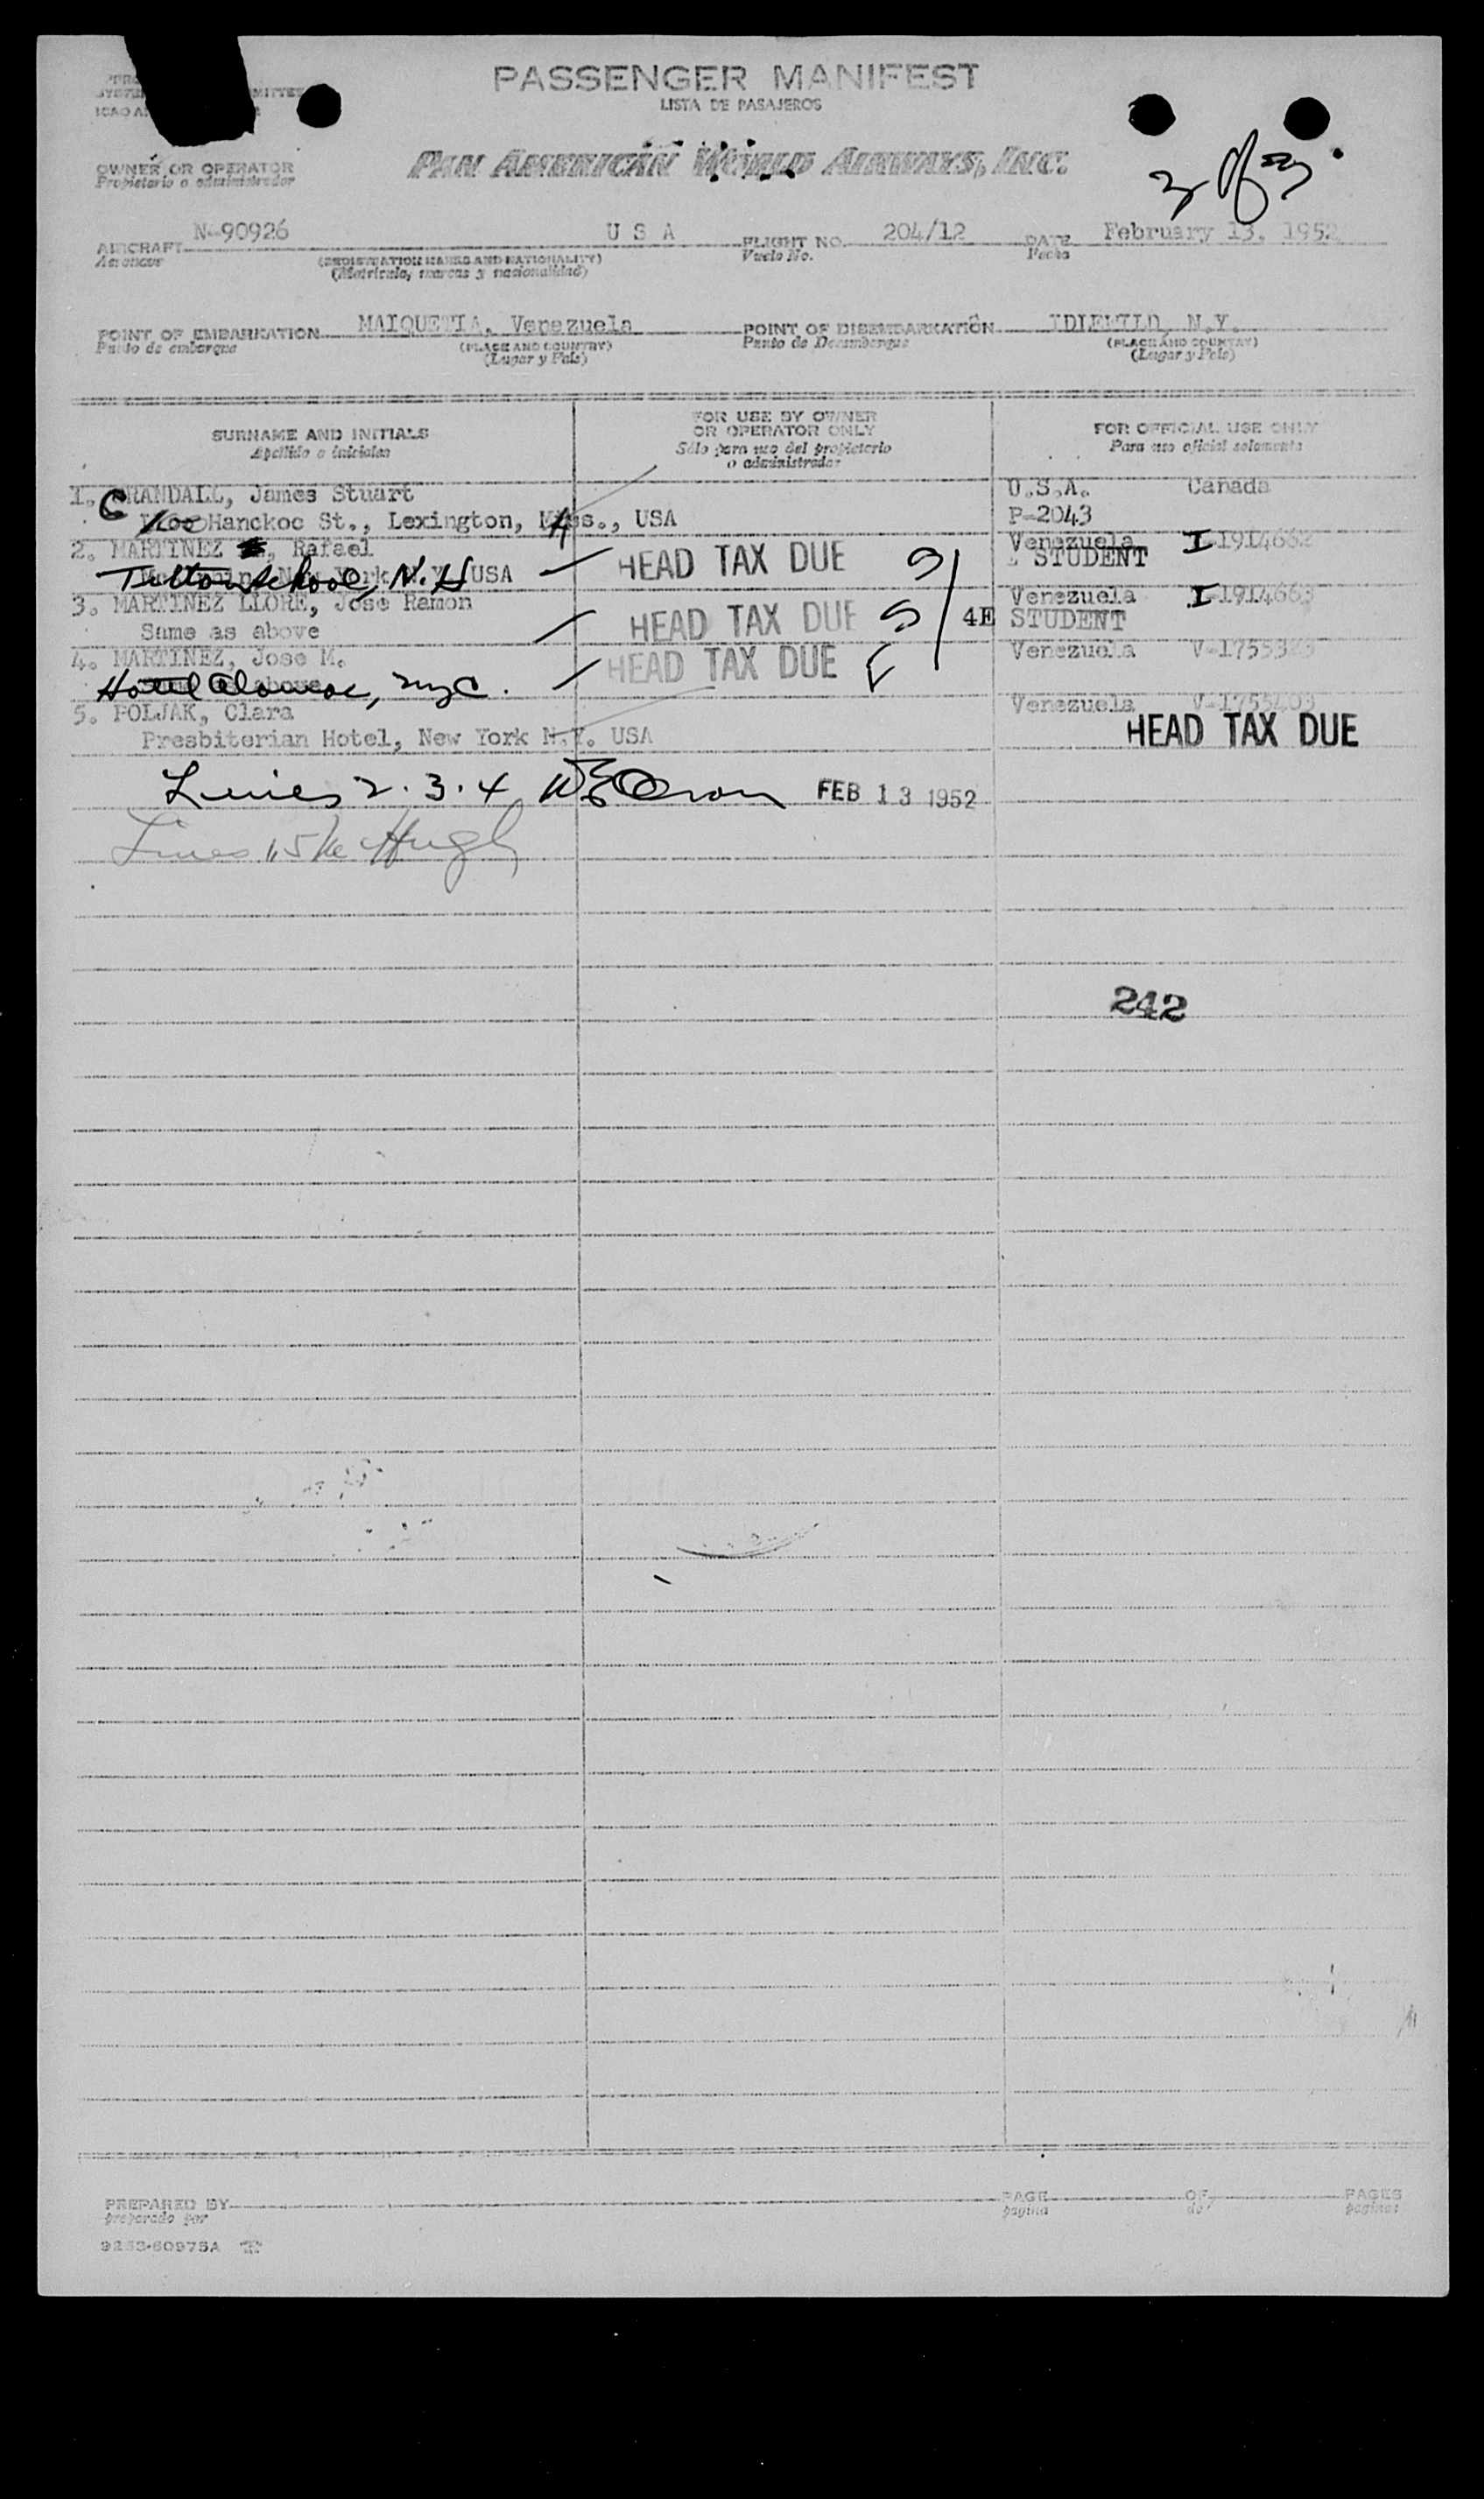 PASSENGER MANIFEST
LISTA DE PASAJEROS
OWNER OR OPERATOR
Propietario o administrador
PAN AMERICAN WORLD AIRWAYS, INC.
AIRCRAFT N-90926 U S A FLIGHT NO. 204/12 DATE February 13, 1952
Aeronave (REGISTRATION MARKS AND NATIONALITY) Vuelo No. Fecha
(Matricula, marcas y nacionalidad)
POINT OF EMBARKATION MAIQUETIA, Venezuela POINT OF DISEMBARKATION IDLEWILD, N.Y.
Punto de embarque (PLACE AND COUNTRY) Punto de Desembarque (PLACE AND COUNTRY)
(Lugar y País) (Lugar y País)
SURNAME AND INITIALS FOR USE BY OWNER OR OPERATOR ONLY FOR OFFICIAL USE ONLY
Apellido e iniciales Sólo para uso del propietario o administrador Para uso oficial solamente
1. CRANDALL, James Stuart U.S.A. Canada
Hanckoc St., Lexington, USA P-2043
2. MARTINEZ, Rafael Venezuela I-1914662
Tilton School, N.H USA HEAD TAX DUE S STUDENT
3. MARTINEZ LLORE, Jose Ramon Venezuela I-1914663
Same as above HEAD TAX DUE S 4E STUDENT
4. MARTINEZ, Jose M. HEAD TAX DUE Venezuela
Hotel NYC.
5. POLJAK, Clara Venezuela V-1753403
Presbiterian Hotel, New York N.Y. USA HEAD TAX DUE
Lines 2.3.4 FEB 13 1952
Lines 1,5 McHugh
242
PREPARED BY PAGE OF PAGES
preparado por página de páginas